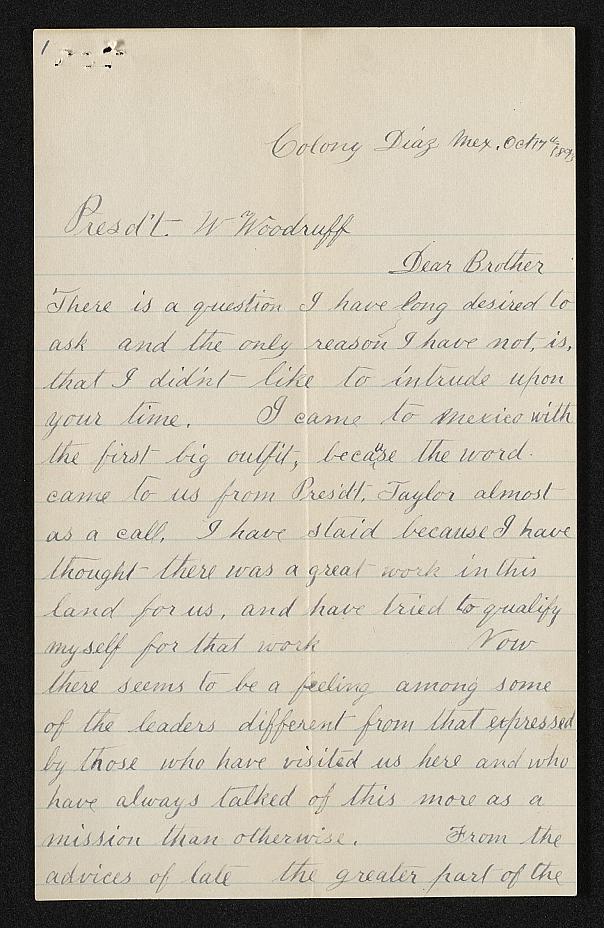 1
Colony Diaz Mex. Oct 17th
Presd't. W Woodruff
Dear Brother
There is a question I have long desired to
ask and the only reason I have not, is,
that I did'nt like to intrude upon
your time. I came to Mexico with
the first big outfit, because the word
came to us from Pres'dt. Taylor almost
as a call. I have staid because I have
thought there was a great work in this
land for us, and have tried to qualify
myself for that work Now
there seems to be a feeling among some
of the leaders different from that expressed
by those who have visited us here and who
have always talked of this more as a
mission than otherwise. From the
advices of late the greater part of the